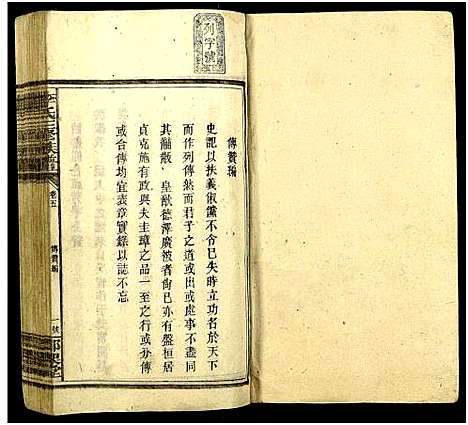 列字號
傳贊編
史記以扶義俶儻不令已失時立功名於天下
而作列傳然而君子之道或出或處事不盡同
其黼黻皇猷德澤廣被者尚已亦有盤桓居
貞克施有政與夫圭璋之品一至之行或分傳
或合傳均宜表章實錄以誌不忘
卷五
傳贊編
一號